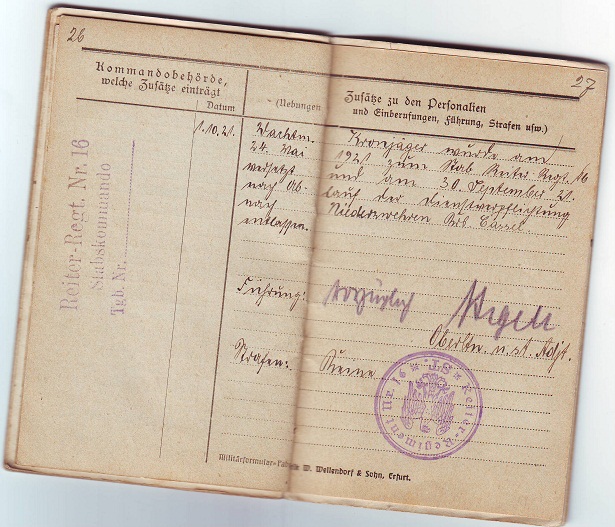 26
Kommandobehörde,
welche Zusätze einträgt
Datum
1.10.21.
Reiter-Regt. Nr. 16
Stabskommando
Tgb. Nr.
27
(Uebungen
Zusätze zu den Personalien
und Einberufungen, Führung, Strafen usw.)
Wachtm. Kronjäger wurde am
24. Mai 1921 zum Stab Reiter Regt. 16
versetzt und am 30. September 21.
nach Ab- lauf der Dienstverpflichtung
nach Niederzwehren Krb. Cassel
entlassen.
Führung: vorzüglich
Oberltn. u. st. Adjt.
Strafen: Keine
Reiter-Regiment Nr. 16 * I St. *
Militärformular-Fabrik W. Wellendorf & Sohn, Erfurt.